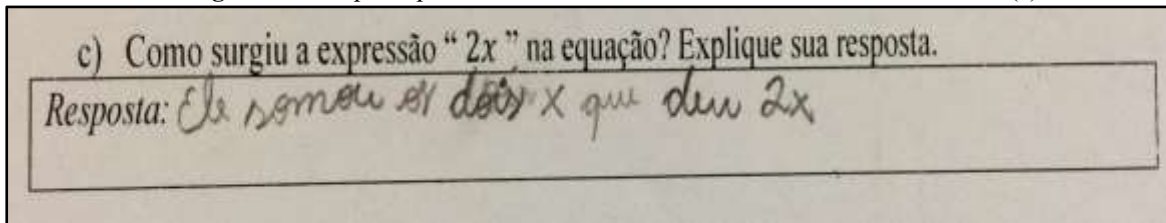 c) Como surgiu a expressão “ 2x ” na equação? Explique sua resposta.
Resposta: Ele somou os dois x que deu 2x